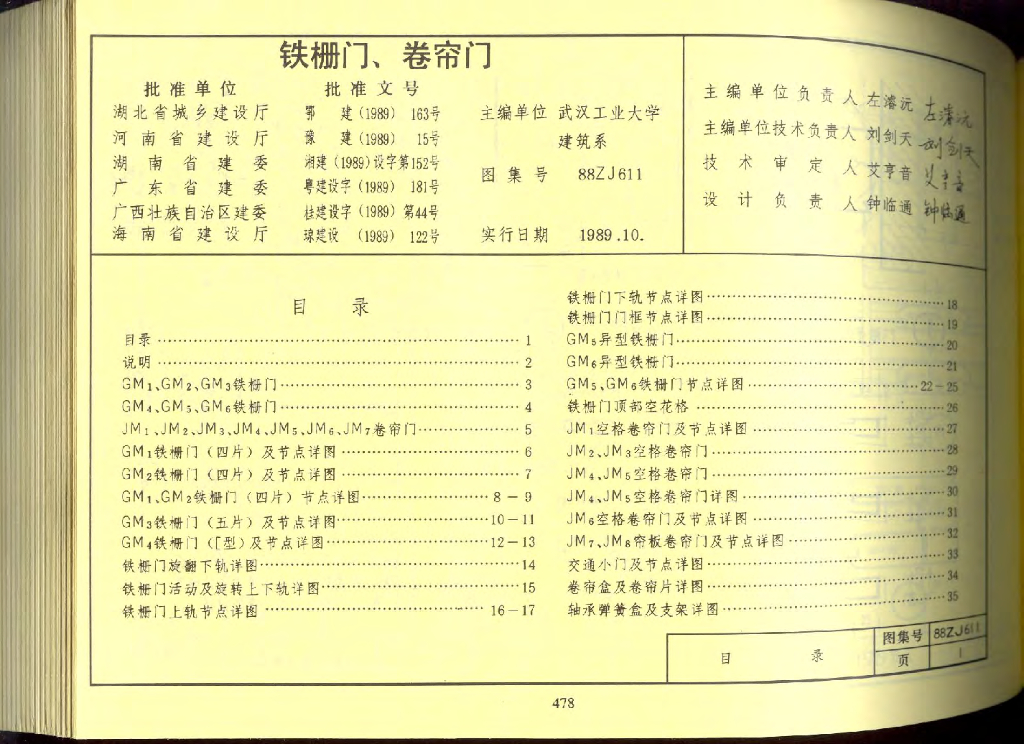 铁栅门、卷帘门
批准单位 批准文号
湖北省城乡建设厅 鄂 建(1989) 163号
河南省建设厅 豫 建(1989) 15号
湖南省建委 湘建(1989)设字第152号
广东省建委 粤建设字(1989) 181号
广西壮族自治区建委 桂建设字(1989) 第44号
海南省建设厅 琼建设 (1989) 122号
主编单位 武汉工业大学
建筑系
图集号 88ZJ611
实行日期 1989.10.
主编单位负责人 左濬沅 左濬沅
主编单位技术负责人 刘剑天 刘剑天
技术审定人 艾亨音 艾亨音
设计负责人 钟临通 钟临通
目 录
目录 1
说明 2
GM1、GM2、GM3铁栅门 3
GM4、GM5、GM6铁栅门 4
JM1、JM2、JM3、JM4、JM5、JM6、JM7卷帘门 5
GM1铁栅门(四片)及节点详图 6
GM2铁栅门(四片)及节点详图 7
GM1、GM2铁栅门(四片)节点详图 8-9
GM3铁栅门(五片)及节点详图 10-11
GM4铁栅门(「型)及节点详图 12-13
铁栅门旋翻下轨详图 14
铁栅门活动及旋转上下轨详图 15
铁栅门上轨节点详图 16-17
铁栅门下轨节点详图 18
铁栅门门框节点详图 19
GM5异型铁栅门 20
GM6异型铁栅门 21
GM5、GM6铁栅门节点详图 22-25
铁栅门顶部空花格 26
JM1空格卷帘门及节点详图 27
JM2、JM3空格卷帘门 28
JM4、JM5空格卷帘门 29
JM4、JM5空格卷帘门详图 30
JM6空格卷帘门及节点详图 31
JM7、JM8帘板卷帘门及节点详图 32
交通小门及节点详图 33
卷帘盒及卷帘片详图 34
轴承弹簧盒及支架详图 35
目 录 图集号 88ZJ611
页 1
478